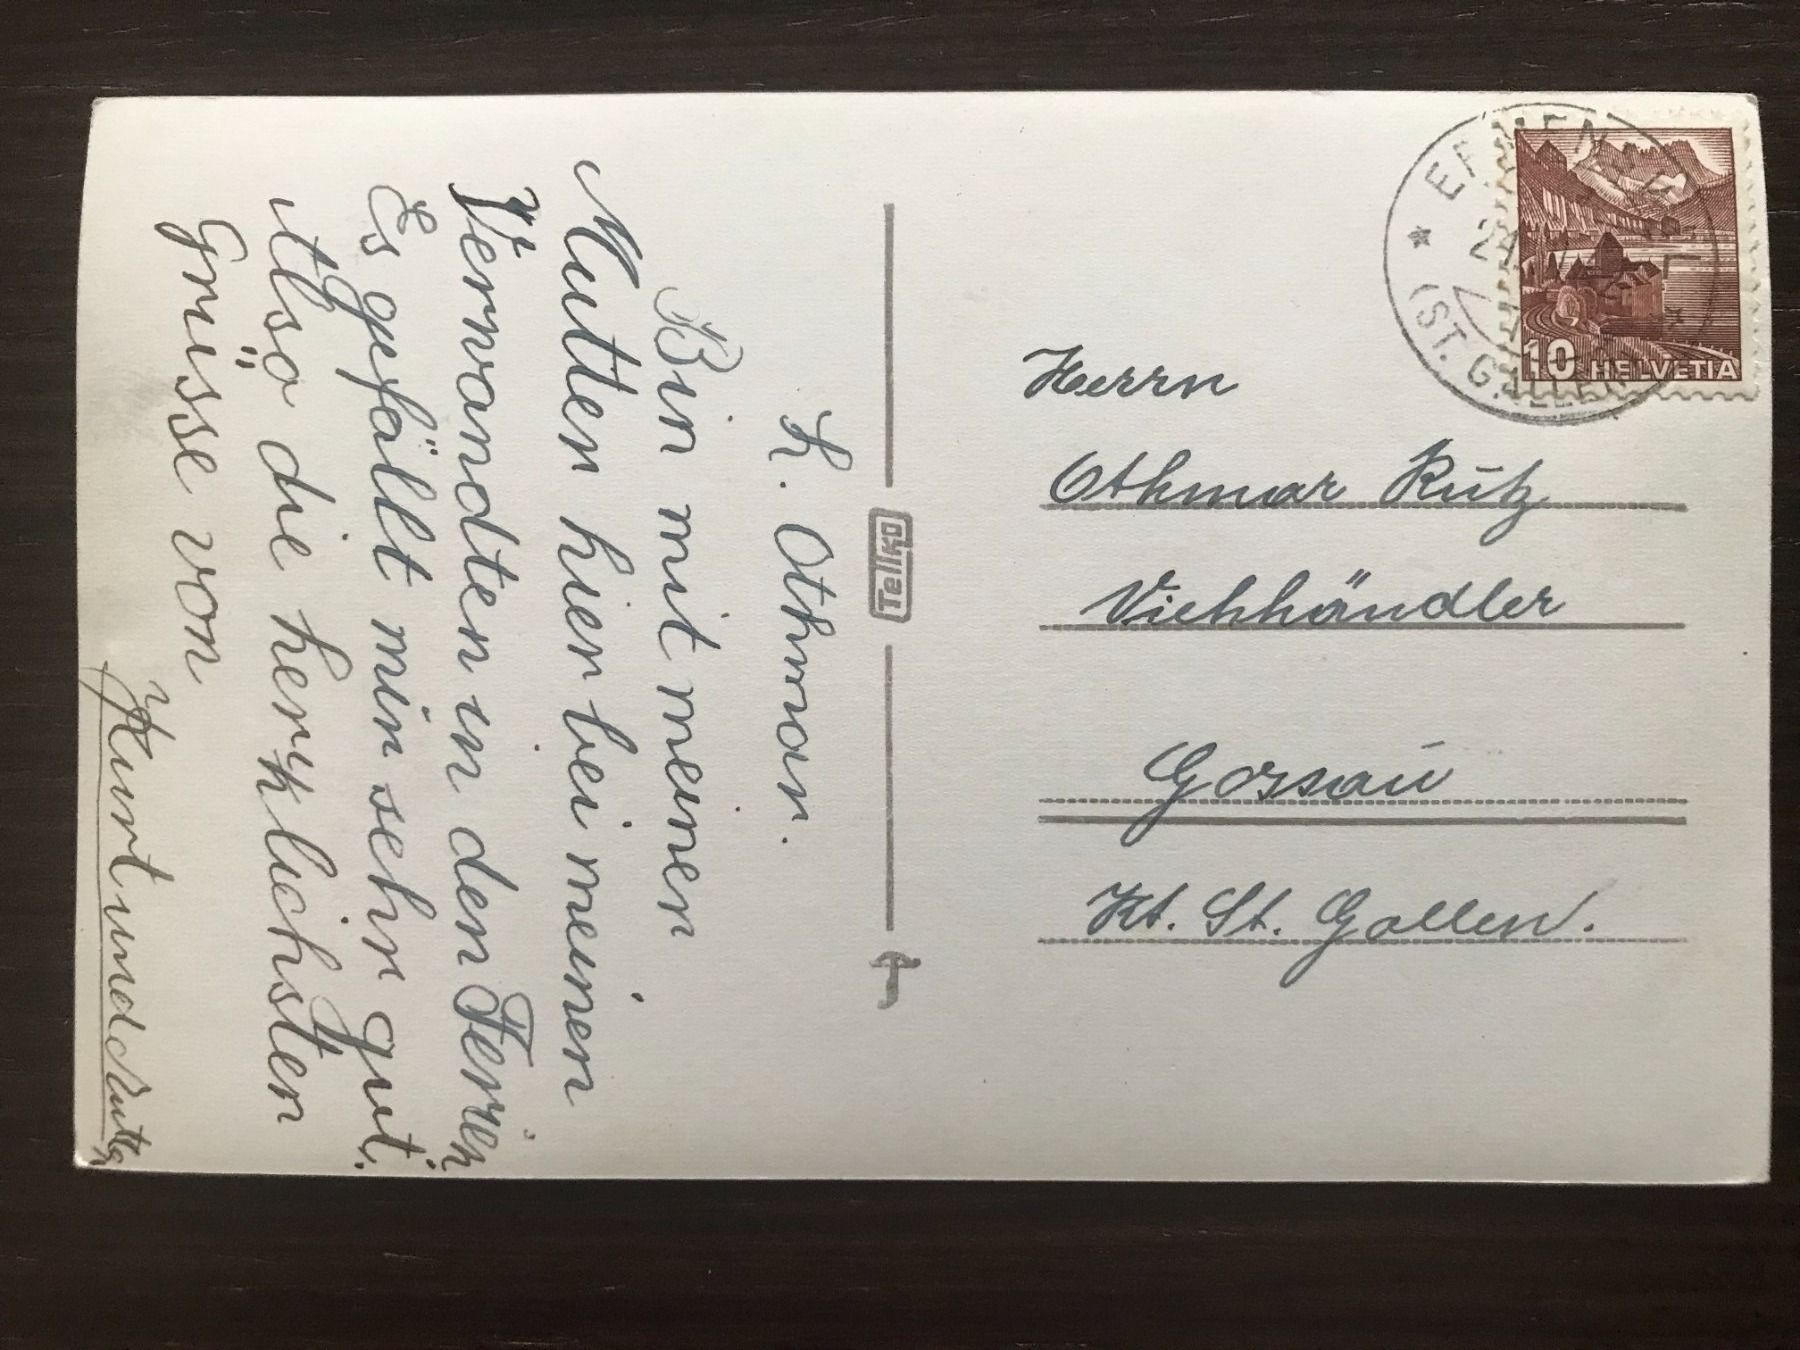 L. Othmar.
Bin mit meiner
Mutter hier bei meinen
Verwandten in den Ferien
Es gefällt mir sehr gut.
Also die herzlichsten
Grüsse von
Kurt und Mutter
Tellko
Herrn
Othmar Rütz
Viehhändler
Gossau
Kt. St. Gallen.
(ST. GALLEN)
10 HELVETIA